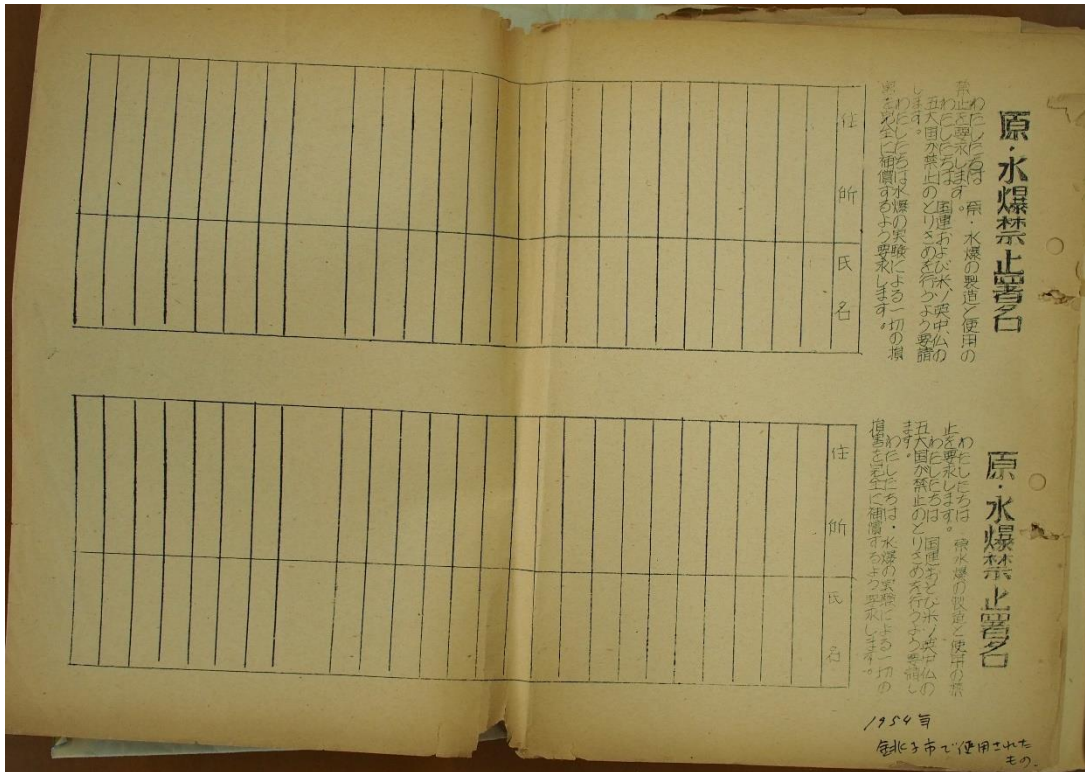 原・水爆禁止署名
わたしたちは 原・水爆の製造と使用の
禁止を要求します。
わたしたちは 国連および米、ソ、英、中、仏の
五大国が禁止のとりきめを行うよう要請
します。
わたしたちは水爆の実験による一切の損
害を完全に補償するよう要求します。
住所
氏名
原・水爆禁止署名
わたしたちは 原水爆の製造と使用の禁
止を要求します。
わたしたちは 国連および米ソ英中仏の
五大国が禁止のとりきめを行うよう要請し
ます。
わたしたちは・水爆の実験による一切の
損害を完全に補償するよう要求します。
住所
氏名
1954年
銚子市で使用された
もの。